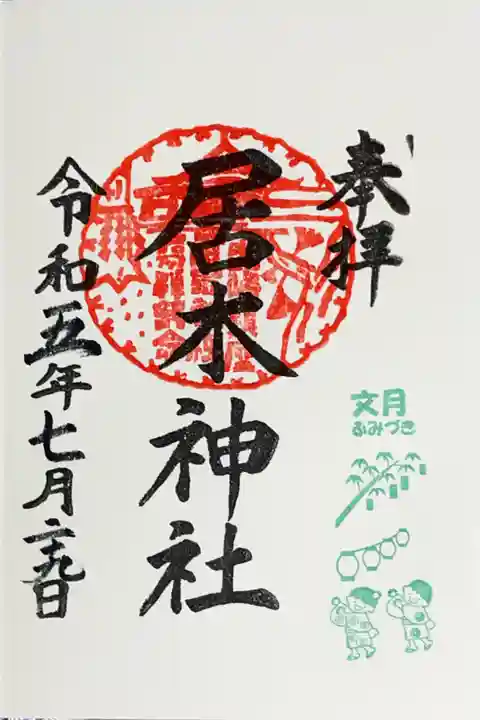 奉拝
居木神社
令和五年七月二十九日
文月
ふみづき